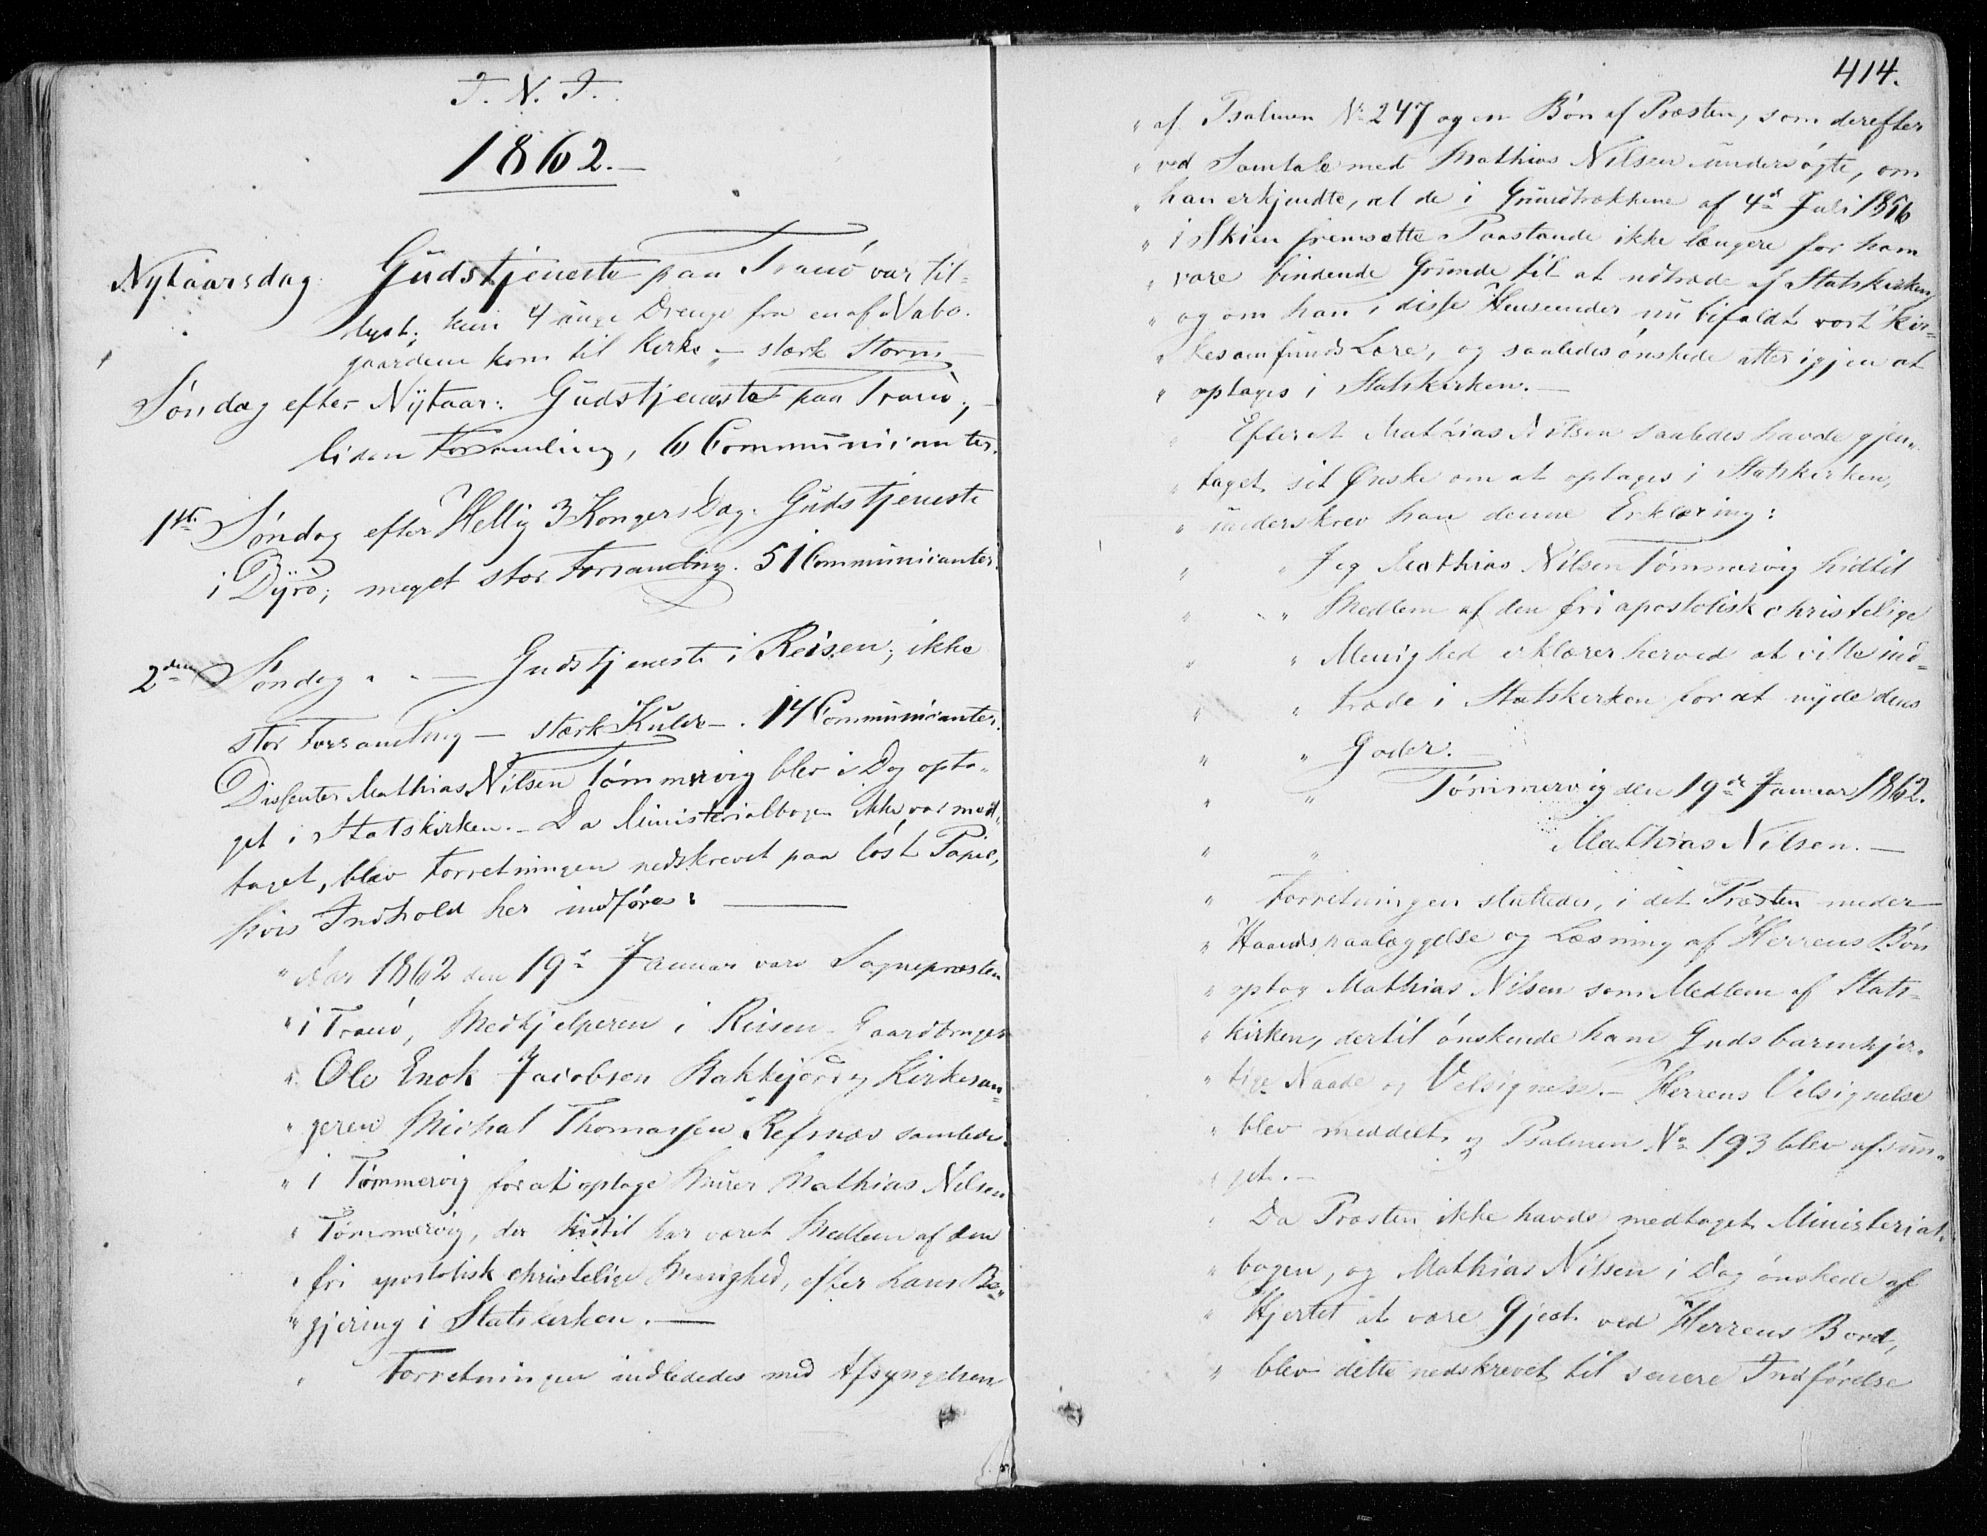 J. N. J.
1862.
Nytaarsdag: Gudstjeneste paa Tranö var til-
lyst; kun 4 unge Drenge fra en af Nabo-
gaardene kom til Kirke, – stærk Storm
Søndag efter Nytaar: Gudstjeneste paa Tranö; –
liden Forsamling, 6 Communicanter.
1ste Søndag efter Hellig 3 Kongers Dag. Gudstjeneste
i Dyrö; meget stor Forsamling. 51 Communicanter.
2den Søndag " " — Gudstjeneste i Reisen; ikke
stor Forsamling – stærk Kulde –. 14 Communicanter.
Dissenter Mathias Nilsen Tømmervig blev i Dag opta-
get i Statskirken. – Da Ministerialbogen ikke var med-
taget, blev Forretningen nedskrevet paa löst Papir,
hvis Indhold her indføres: —
" Aar 1862 den 19de Januar vare Sognepræsten
" i Tranö, Medhjelperen i Reisen Gaardbruger
" Ole Enok Jacobsen Bakkejord og Kirkesan-
" geren Michal Thomassen Refsnæs samlede
" i Tömmervig for at optage Murer Mathias Nilsen
" Tömmervig, der hidtil har været Medlem af den
" fri apostolisk christelige Menighed, efter hans Be-
" gjering i Statskirken. —
" Forretningen indlededes med Afsyngelsen
414.
" af Psalmen No 247 og en Bön af Præsten, som derefter
" ved Samtale med Mathias Nilsen undersögte, om
" han erkjendte, at de i Grundtrækkene af 4de Juli 1856
" i Skien fremsatte Paastande ikke længere for ham
" vare bindende Grunde til at udtræde af Statskirken,
" og om han i disse Henseender nu bifaldt vort Kir-
" kesamfunds Lære, og saaledes önskede atter igjen at
" optages i Statskirken. –
" Efterat Mathias Nilsen saaledes havde gjen-
" taget sit Ønske om at optages i Statskirken,
" underskrev han denne Erklæring:
" " Jeg Mathias Nilsen Tømmervig hidtil
" " Medlem af den fri apostolisk christelige
" " Menighed erklærer herved at ville ind-
" " træde i Statskirken for at nyde dens
" " Goder. –
" " Tømmervig den 19de Januar 1862.
" " Mathias Nilsen. –
" Forretningen sluttedes, i det Præsten under
" Haandspaalæggelse og Læsning af Herrens Bön
" optog Mathias Nilsen som Medlem af Stats-
" kirken, dertil önskende ham Guds barmhjer-
" tige Naade og Velsignelse. – Herrens Velsignelse
" blev meddelt, og Psalmen No 193 blev afsun-
" get. –
" Da Præsten ikke havde medtaget Ministerial-
" bogen, og Mathias Nilsen i Dag önskede af
" Hjertet at være Gjest ved Herrens Bord,
" blev dette nedskrevet til senere Indförelse